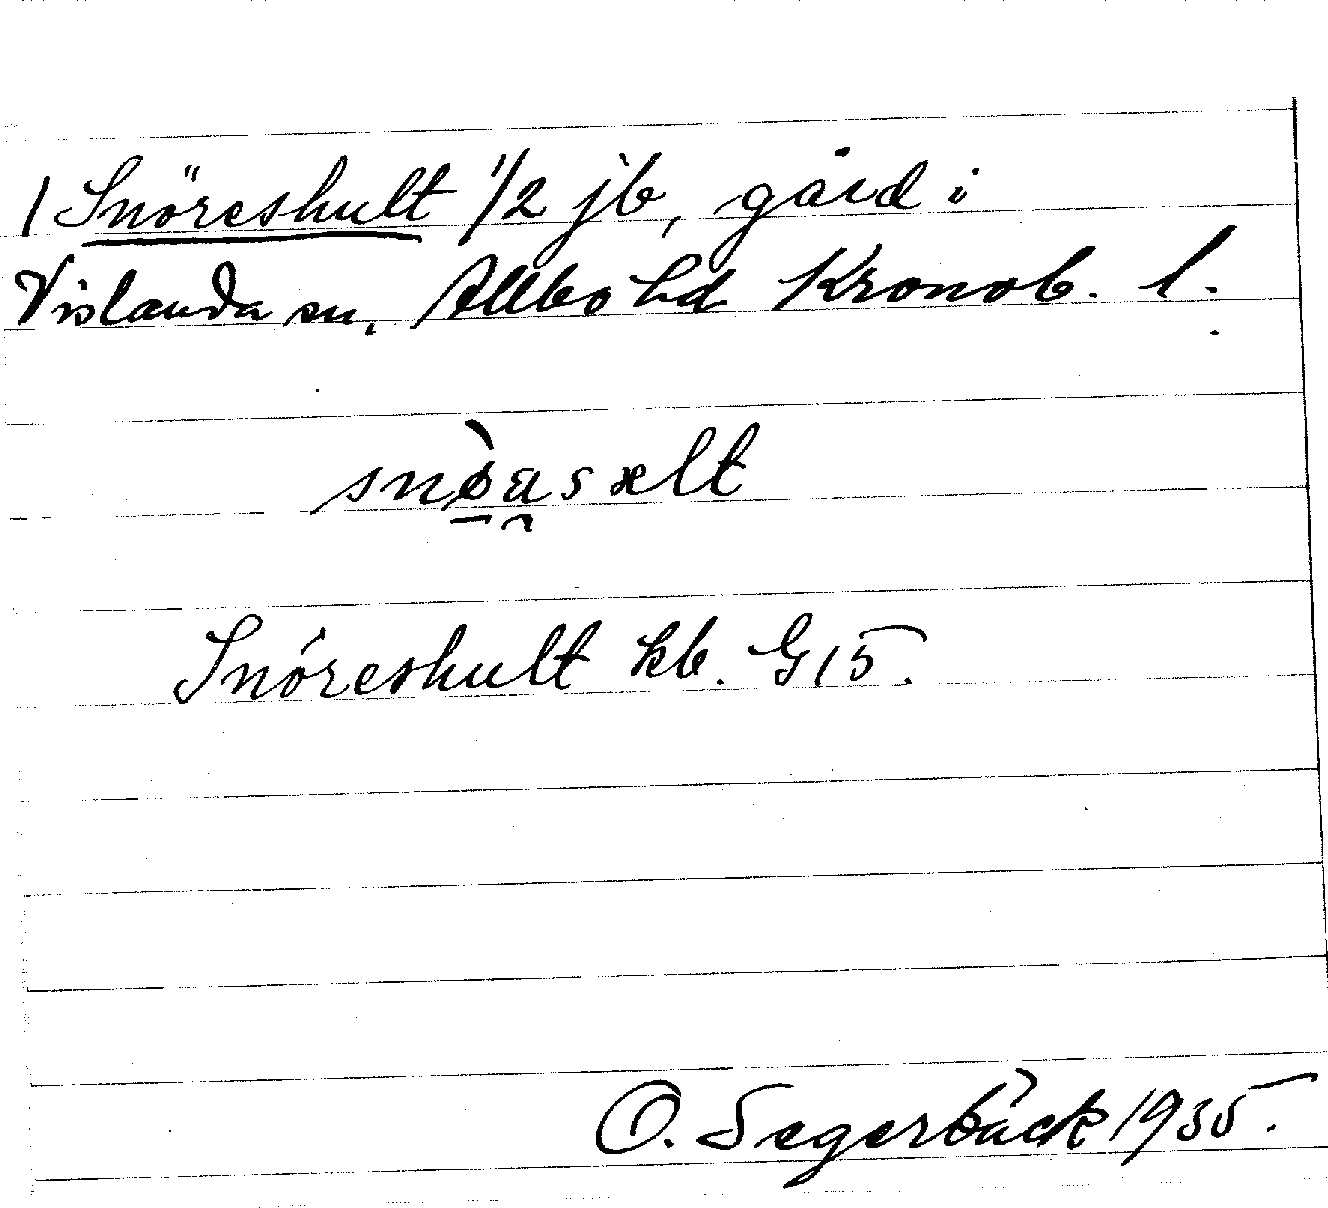 1 Snöreshult 1/2 jb, gård i
Vislanda sn. Allbo hd Kronob. l.
snø̀asælt
Snöreshult kb. G15.
O. Segerbäck 1935.